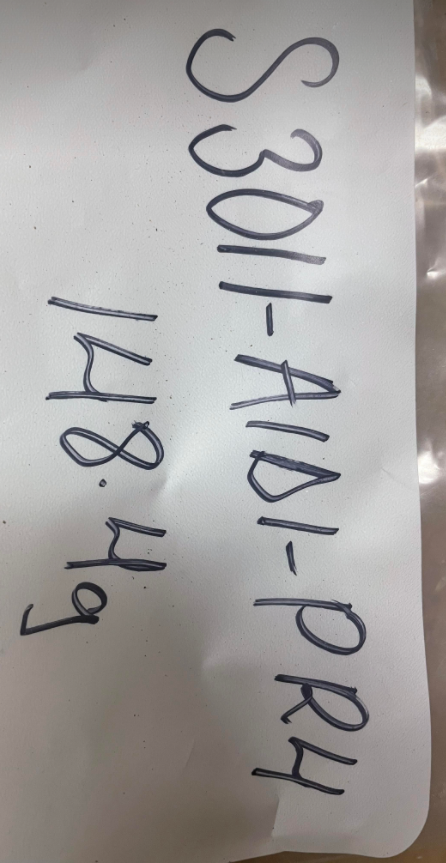 S3011-A1D1-PR4
148.4g